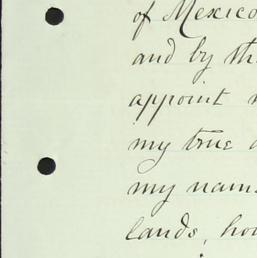 of Mexico
and by th
appoint
my true
my name
lands, hou